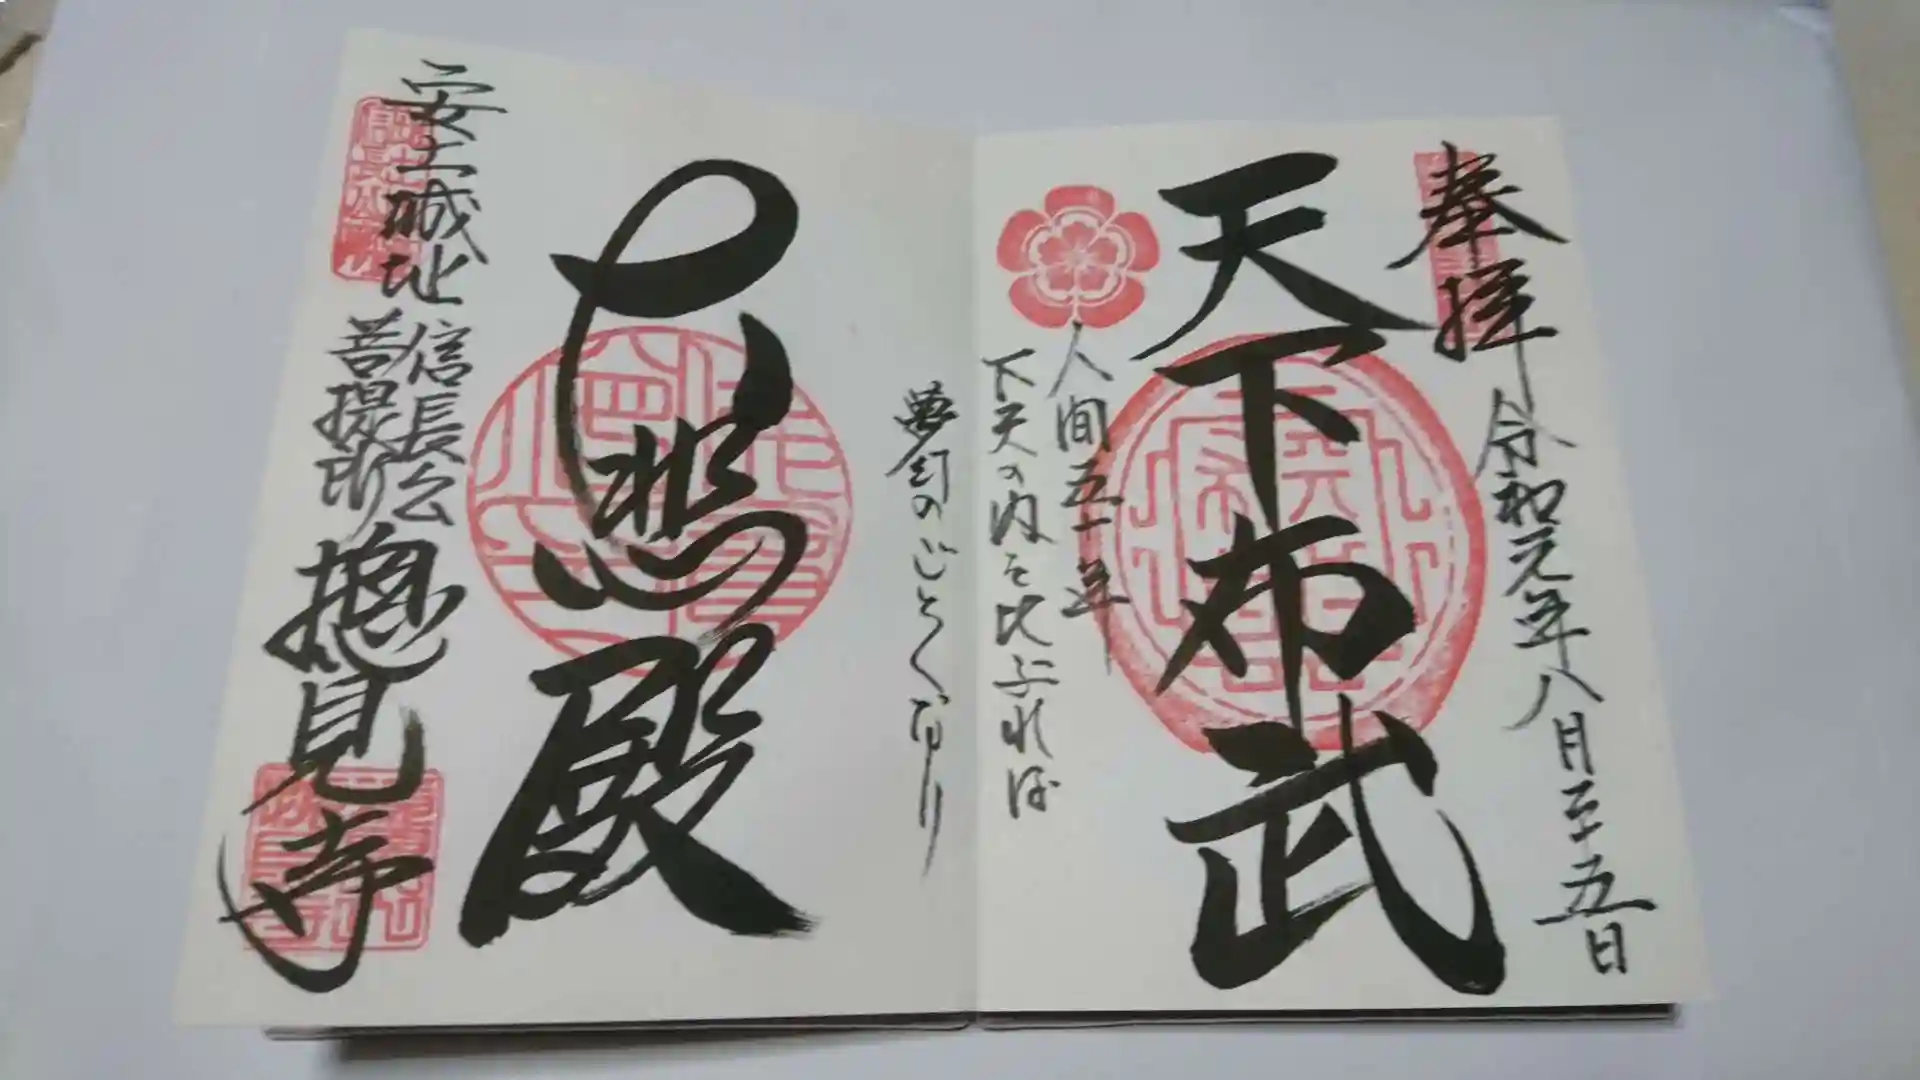 奉拝
令和元年八月二五日
天下布武
人間五十年
下天の内を比ぶれば
夢幻のごとくなり
大悲殿
安土城址
信長公
菩提所
摠見寺